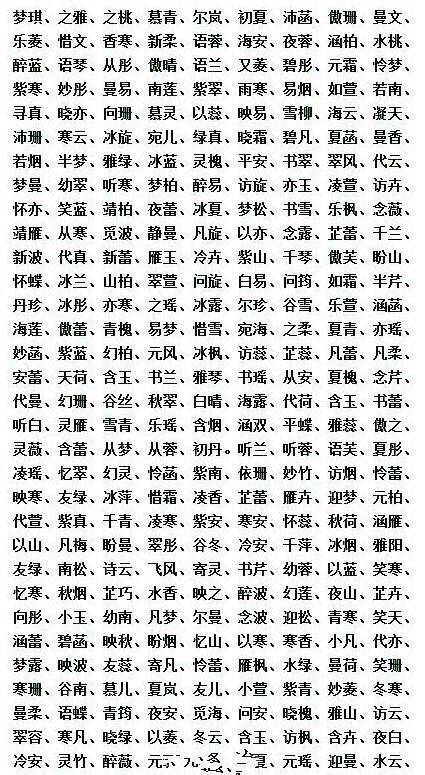 梦琪、之雅、之桃、慕青、尔岚、初夏、沛菡、傲珊、曼文、
乐菱、惜文、香寒、新柔、语蓉、海安、夜蓉、涵柏、水桃、
醉蓝、语琴、从彤、傲晴、语兰、又菱、碧彤、元霜、怜梦、
紫寒、妙彤、曼易、南莲、紫翠、雨寒、易烟、如萱、若南、
寻真、晓亦、向珊、慕灵、以蕊、映易、雪柳、海云、凝天、
沛珊、寒云、冰旋、宛儿、绿真、晓霜、碧凡、夏菡、曼香、
若烟、半梦、雅绿、冰蓝、灵槐、平安、书翠、翠风、代云、
梦曼、幼翠、听寒、梦柏、醉易、访旋、亦玉、凌萱、访卉、
怀亦、笑蓝、靖柏、夜蕾、冰夏、梦松、书雪、乐枫、念薇、
靖雁、从寒、觅波、静曼、凡旋、以亦、念露、芷蕾、千兰、
新波、代真、新蕾、雁玉、冷卉、紫山、千琴、傲芙、盼山、
怀蝶、冰兰、山柏、翠萱、问旋、白易、问筠、如霜、半芹、
丹珍、冰彤、亦寒、之瑶、冰露、尔珍、谷雪、乐萱、涵菡、
海莲、傲蕾、青槐、易梦、惜雪、宛海、之柔、夏青、亦瑶、
妙菡、紫蓝、幻柏、元风、冰枫、访蕊、芷蕊、凡蕾、凡柔、
安蕾、天荷、含玉、书兰、雅琴、书瑶、从安、夏槐、念芹、
代曼、幻珊、谷丝、秋翠、白晴、海露、代荷、含玉、书蕾、
听白、灵雁、雪青、乐瑶、含烟、涵双、平蝶、雅蕊、傲之、
灵薇、含蕾、从梦、从蓉、初丹。听兰、听蓉、语芙、夏彤、
凌瑶、忆翠、幻灵、怜菡、紫南、依珊、妙竹、访烟、怜蕾、
映寒、友绿、冰萍、惜霜、凌香、芷蕾、雁卉、迎梦、元柏、
代萱、紫真、千青、凌寒、紫安、寒安、怀蕊、秋荷、涵雁、
以山、凡梅、盼曼、翠彤、谷冬、冷安、千萍、冰烟、雅阳、
友绿、南松、诗云、飞风、寄灵、书芹、幼蓉、以蓝、笑寒、
忆寒、秋烟、芷巧、水香、映之、醉波、幻莲、夜山、芷卉、
向彤、小玉、幼南、凡梦、尔曼、念波、迎松、青寒、笑天、
涵蕾、碧菡、映秋、盼烟、忆山、以寒、寒香、小凡、代亦、
梦露、映波、友蕊、寄凡、怜蕾、雁枫、水绿、曼荷、笑珊、
寒珊、谷南、慕儿、夏岚、友儿、小萱、紫青、妙菱、冬寒、
曼柔、语蝶、青筠、夜安、觅海、问安、晓槐、雅山、访云、
翠容、寒凡、晓绿、以菱、冬云、含玉、访枫、含卉、夜白、
冷安、灵竹、醉薇、元 夏、元瑶、迎曼、水云、